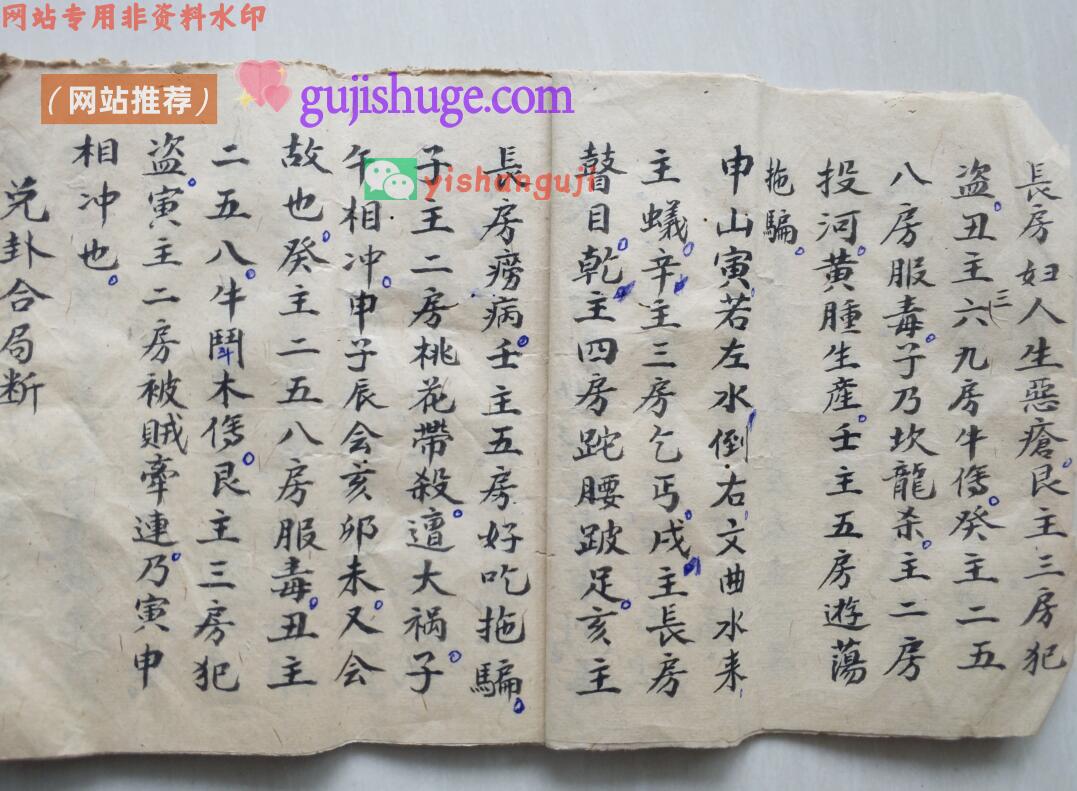 网站专用非资料水印
（网站推荐）
gujishuge.com
yishanguji
長房妇人生惡瘡。艮主三房犯
盗。丑主六三九房牛傷。癸主二五
八房服毒。子乃坎龍杀。主二房
投河。黄腫生產。壬主五房遊蕩
拖騙。
申山寅。若左水倒右文曲水来
主蟻。辛主三房乞丐。戌主長房
瞽目。乾主四房跎腰跛足。亥主
長房癆病。壬主五房好吃拖騙。
子主二房桃花帶殺。遭大祸。子
午相冲。申子辰会亥卯未。又会
故也。癸主二五八房服毒。丑主
二五八。牛鬪斗木傷。艮主三房犯
盗。寅主二房被贼牽連。乃寅申
相冲也。
兑卦合局断